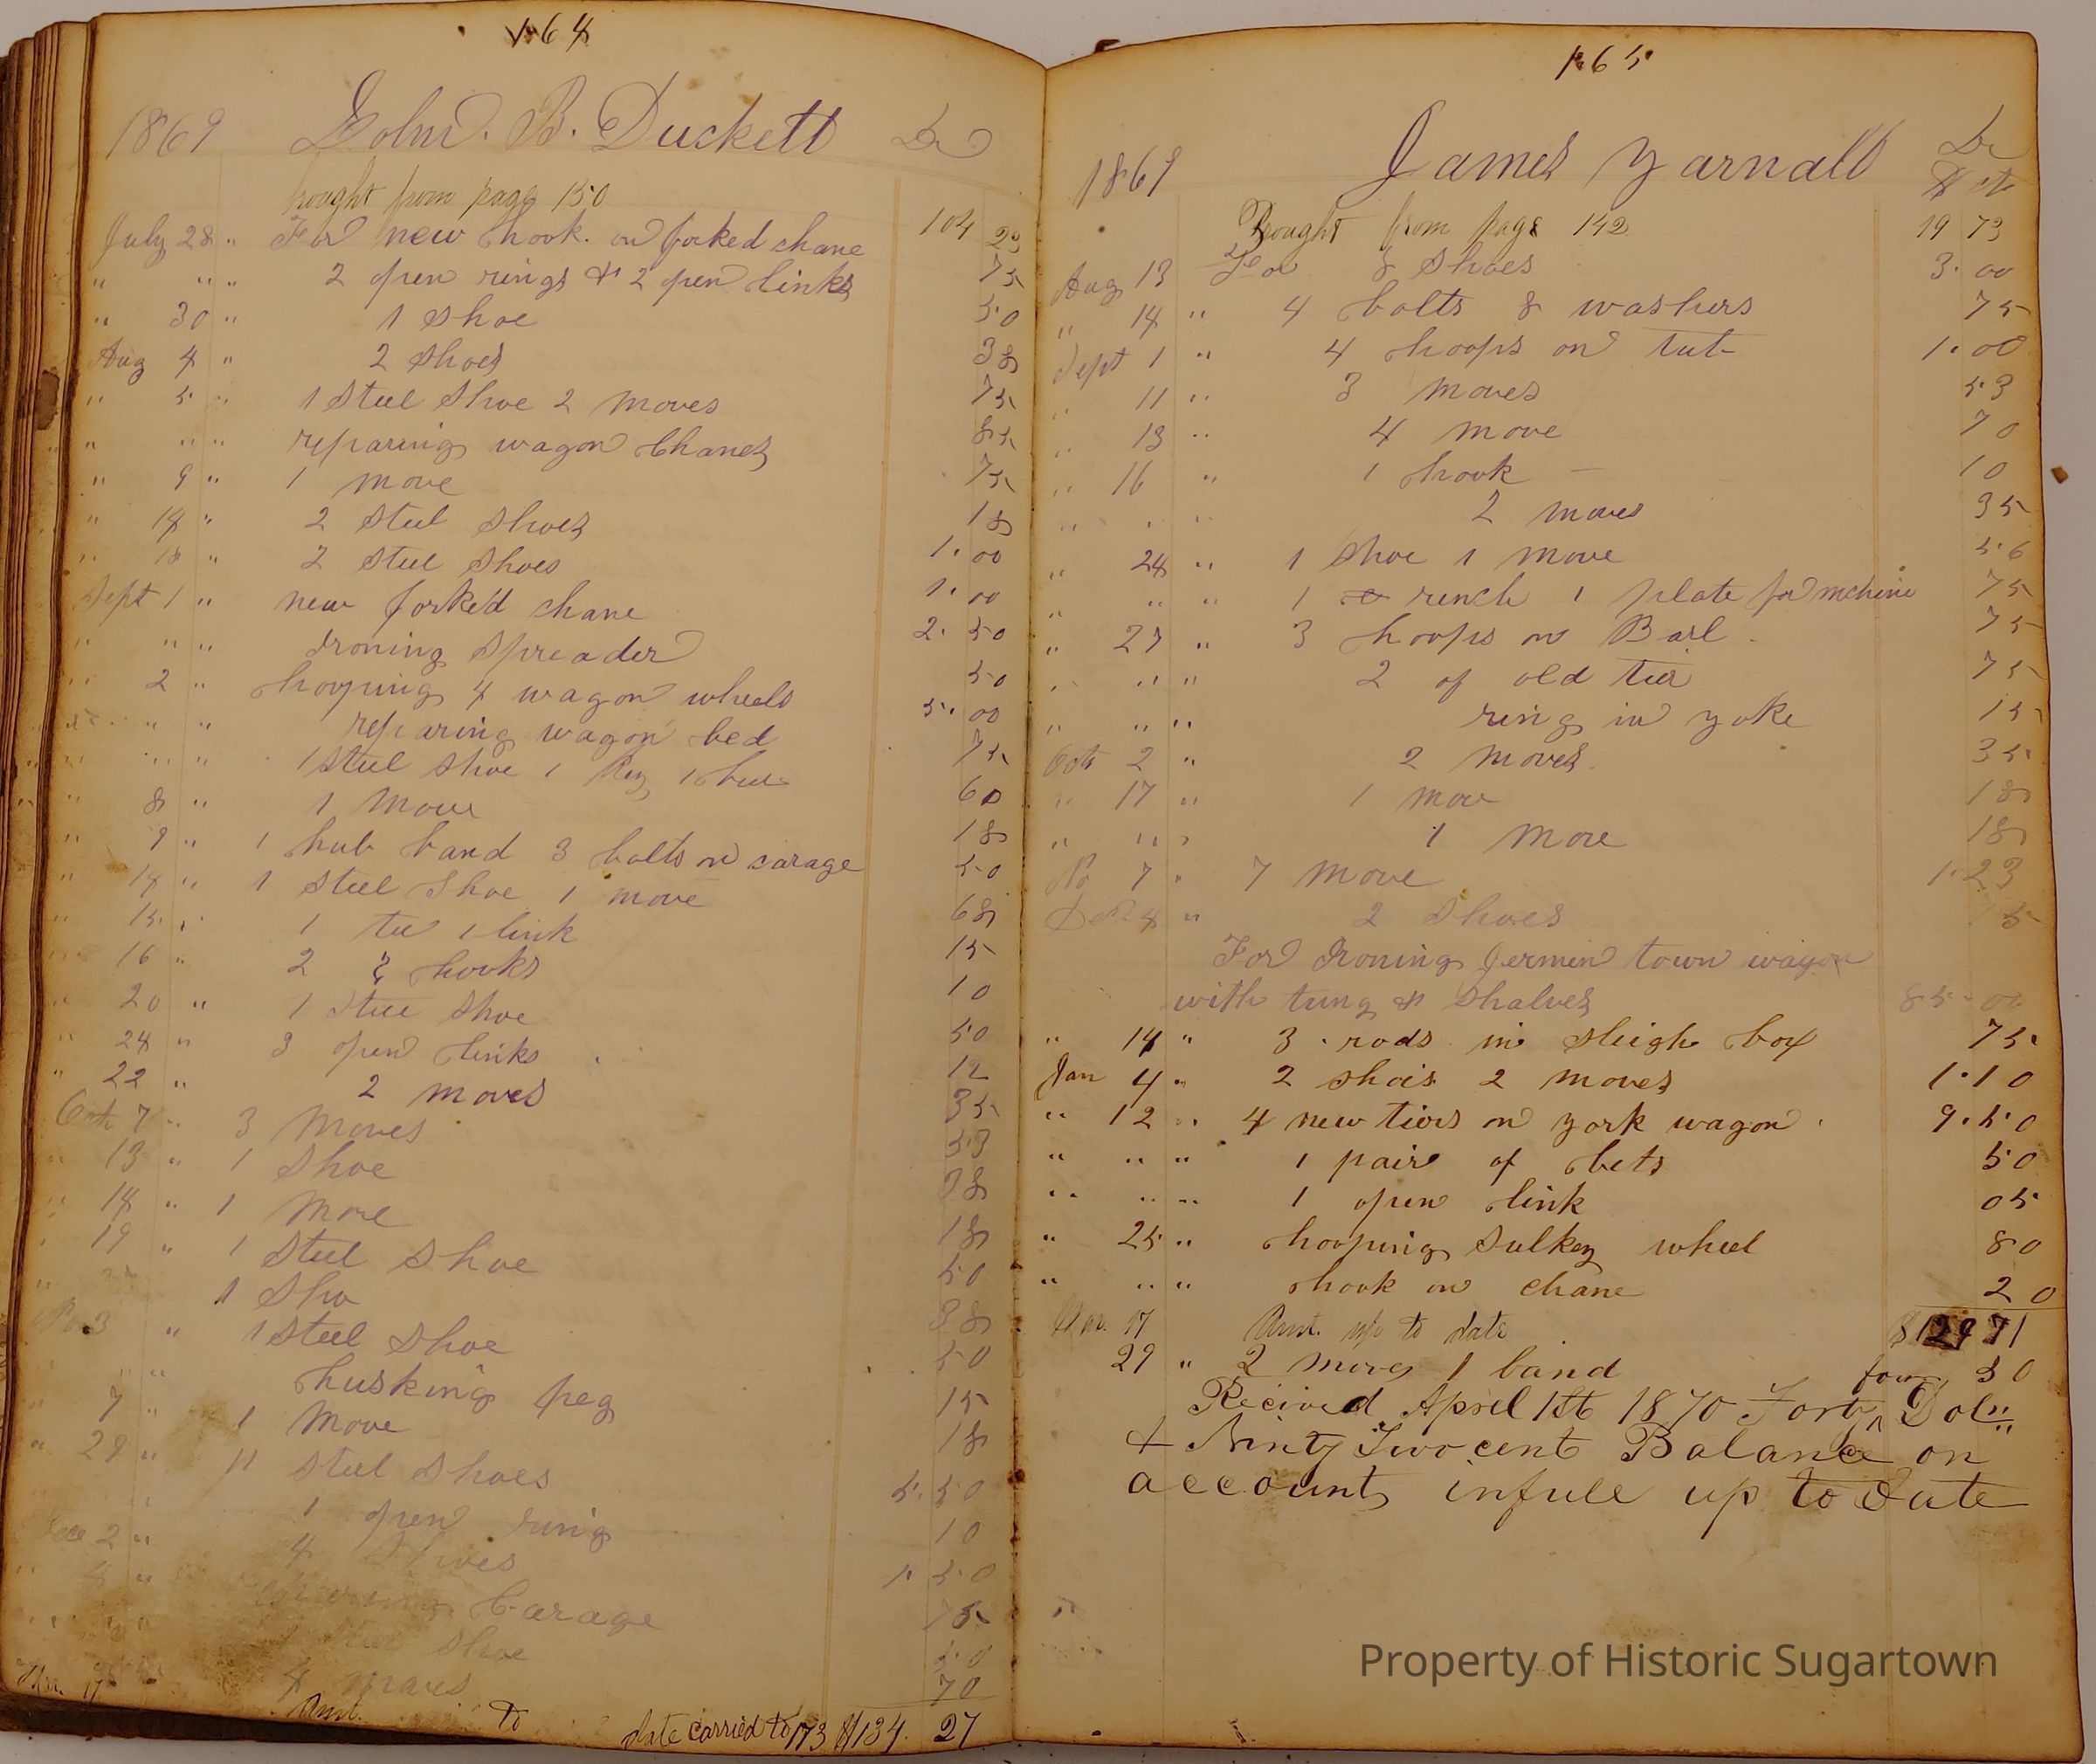 164
1869 John. B. Duckett Dr
brought from page 150 104 23
July 28 " For new hook. on forked chane 75
" " " 2 open rings & 2 open links 50
" 30 " 1 shoe 38
Aug 4 " 2 shoes 75
" 5 " 1 steel shoe 2 moves 85
" " " reparing wagon chanes 75
" 9 " 1 move 18
" 14 " 2 steel shoes 1.00
" 18 " 2 steel shoes 1.00
Sept 1 " new forked chane 2.50
" " " Ironing spreader 50
" 2 " hooping 4 wagon wheels 5.00
" " " reparing wagon bed 75
" " " 1 steel shoe 1 Key 1 60
" 8 " 1 Move 18
" 9 " 1 hub band 3 bolts on carage 50
" 14 " 1 steel shoe 1 move 68
" 15 " 1 tee 1 link 15
" 16 " 2 hooks 10
" 20 " 1 stee shoe 50
" 24 " 3 open links 12
" 22 " 2 moves 35
Octs 7 " 3 Moves 53
" 13 " 1 shoe 38
" 14 " 1 Move 18
" 19 " 1 steel shoe 50
" 1 sho 38
No. 3 " 1 steel shoe 50
" " husking peg 15
" 7 " 1 Move 18
" 29 " 11 steel shoes 5.50
" 1 open ring 10
Dec 2 " 4 shoes 1.50
" 4 " carage 75
" " " steel shoe 50
4 moves 70
Mar. 17 Amt. to date carried to 173 $134. 27
165
1869 James Yarnall Dr
$ cts
Brought from page 142 19 73
Aug 13 For 8 shoes 3.00
" 14 " 4 bolts & washers 75
Sept 1 " 4 hoops on tub 1.00
" 11 " 3 moves 53
" 13 " 4 move 70
" 16 " 1 hook 10
" " " 2 moves 35
" 24 " 1 shoe 1 move 56
" " " 1 rench 1 plate for mchine 75
" 27 " 3 hoops on Barl. 75
" " " 2 of old tier 75
" " " ring in yoke 15
Octs 2 " 2 moves. 35
" 17 " 1 mov 18
" " " 1 move 18
No 7 " 7 move 1.23
Dec 4 " 2 shoes 5
For Ironing germen town wagon
with tung & shalves 85.00
" 14 " 3 rods in sleigh box 75
Jan 4 " 2 shois 2 moves 1.10
" 12 " 4 new tiers on york wagon 9.50
" " " 1 pair of bets 50
" " " 1 open link 05
" 25 " hooping sulkey wheel 80
" " " hook on chane 20
Mar. 17 Amt. up to date $129 71
29 " 2 moves 1 band 30
four
Recived April 1st 1870 Forty Dol"
& Ninty Two cent Balance on
account infull up to date
Property of Historic Sugartown